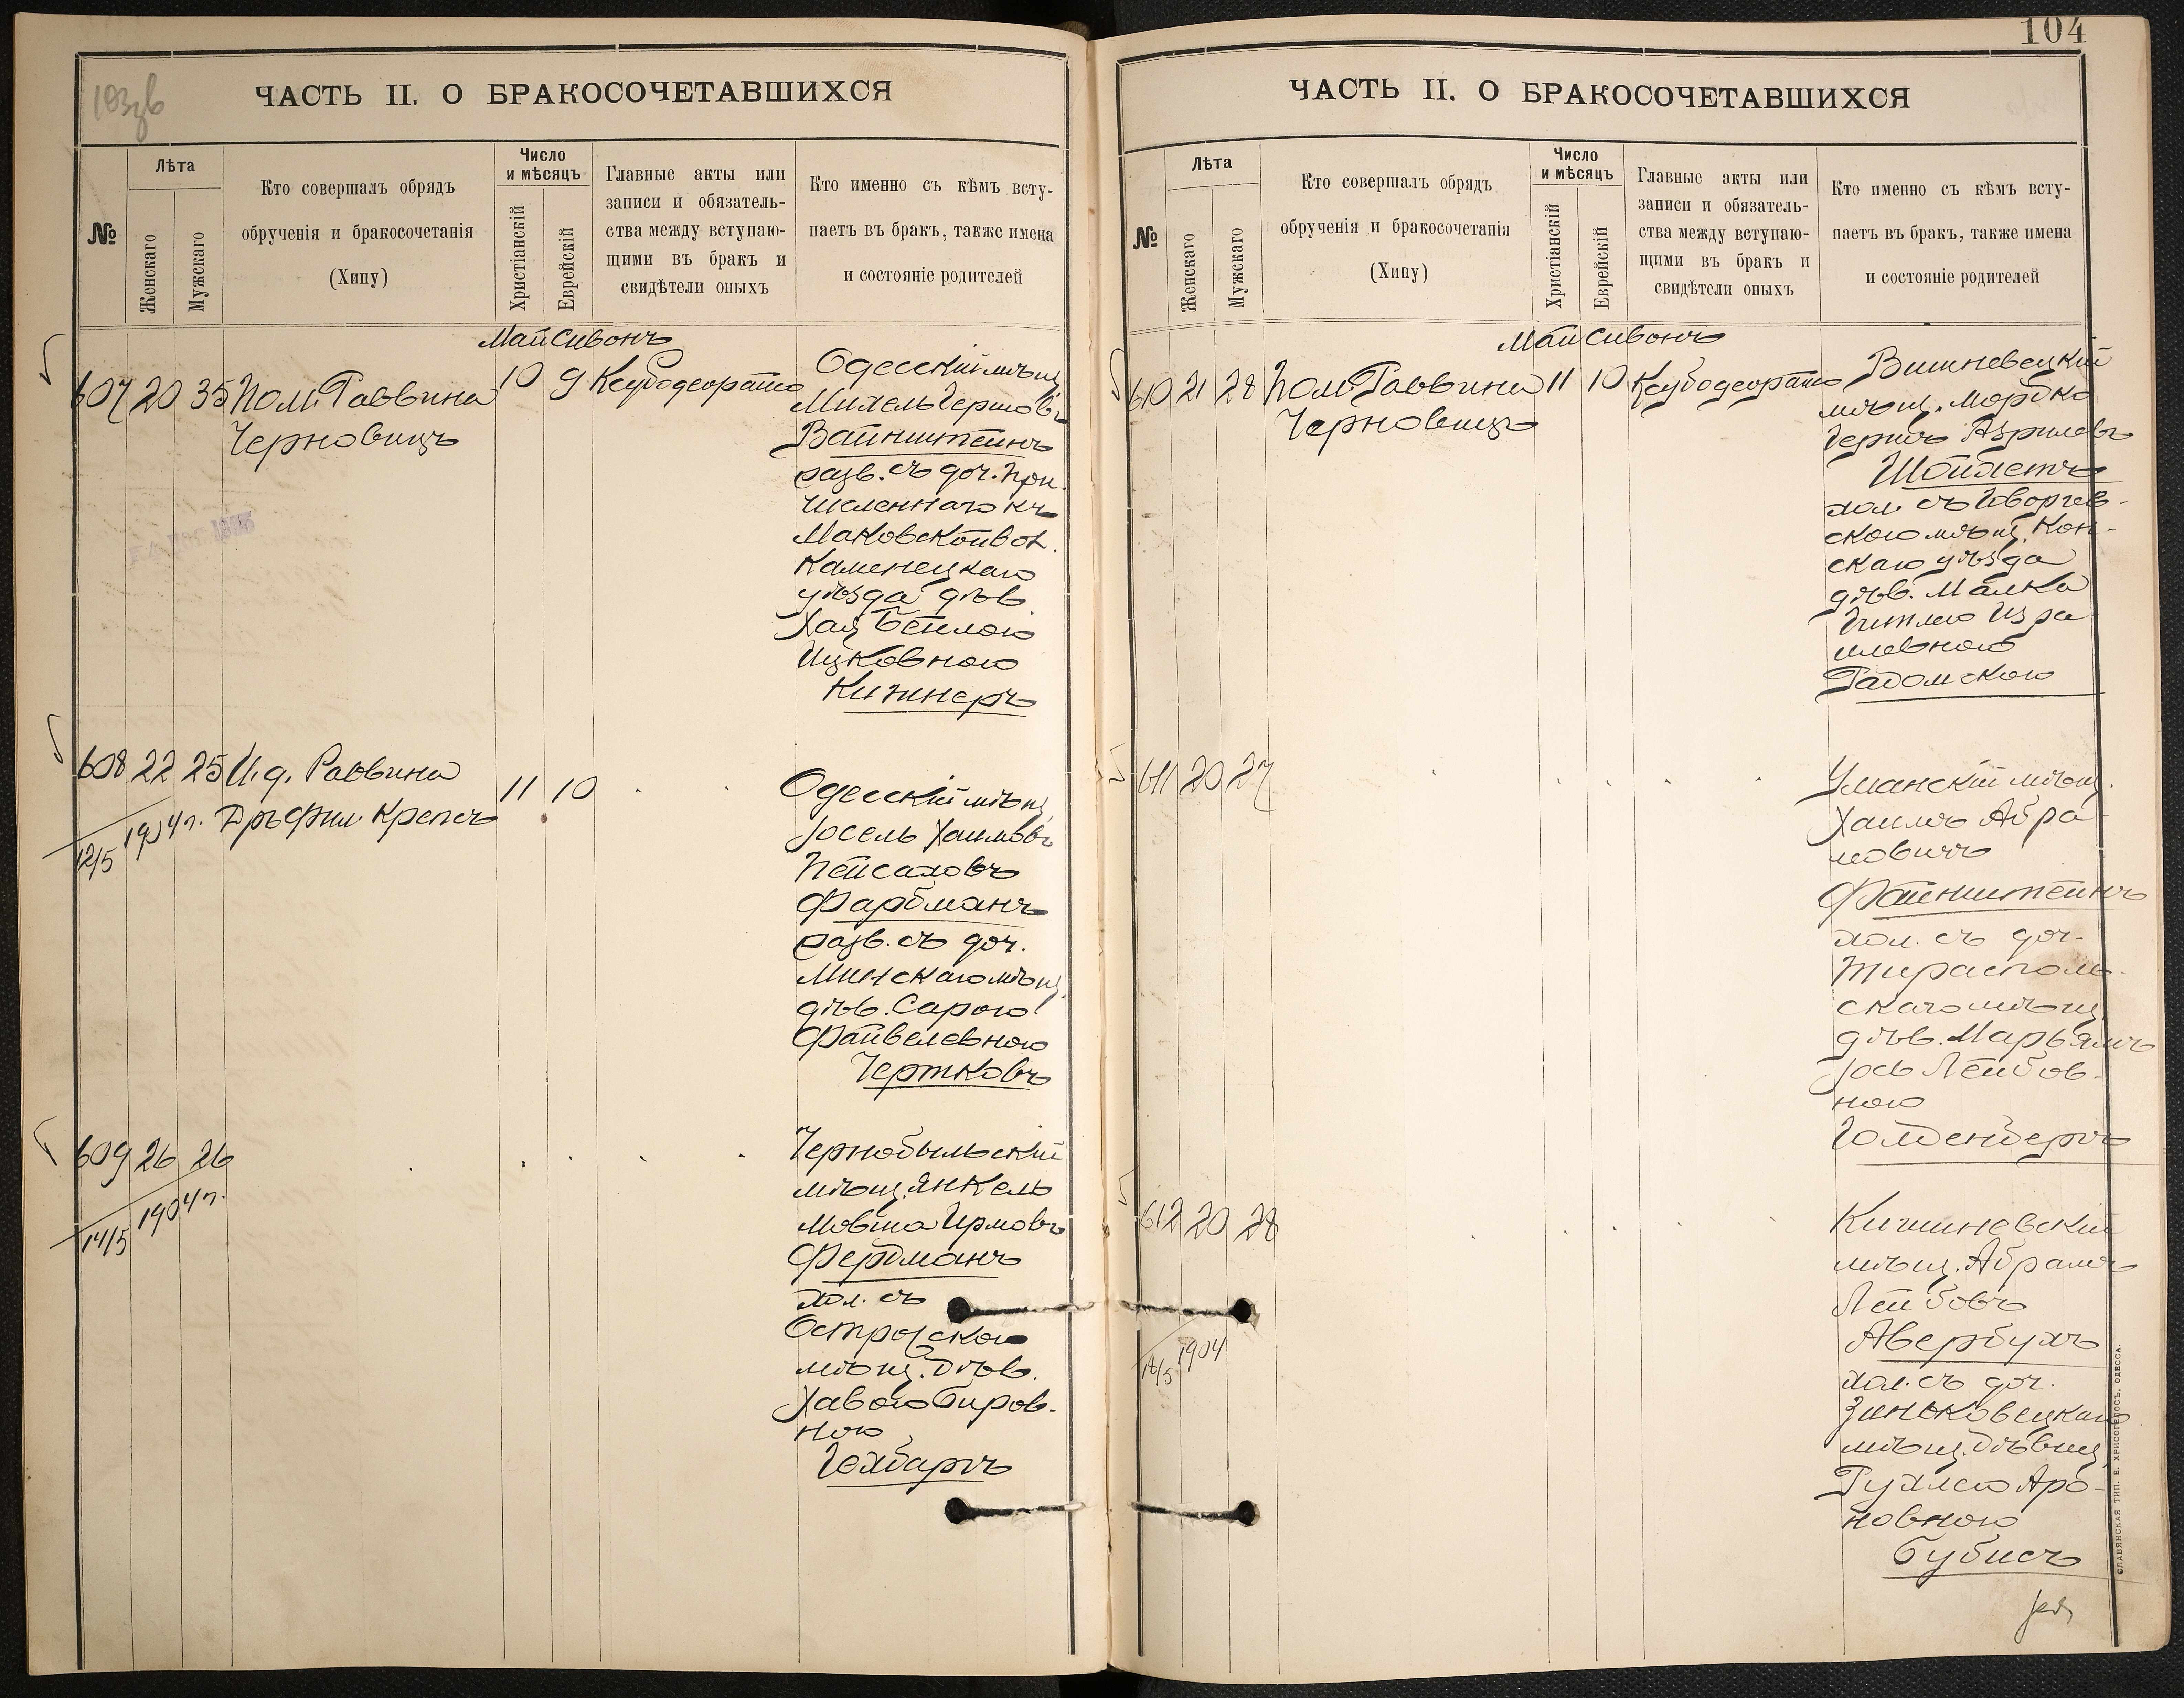 103об
ЧАСТЬ II. О БРАКОСОЧЕТАВШИХСЯ
№
Лѣта
Женскаго
Мужскаго
Кто совершалъ обрядъ
обрученія и бракосочетанія
(Хипу)
Число
и мѣсяцъ
Христіанскій
Еврейскій
Главные акты или
записи и обязатель-
ства между вступаю-
щими въ бракъ и
свидѣтели оныхъ
Кто именно съ кѣмъ всту-
паетъ въ бракъ, также имена
и состояніе родителей
Май Сивонъ
607 20 35 Пом. Раввина 10 9
Черновицъ
Одесскій мѣщ.
Михель Гершовъ
Вайнштейнъ
разв. съ доч. при-
численнаго къ
Маковской вол.
Каменецкаго
уѣзда дѣв.
Хая Бейлою
Ицковною
Кижнеръ
608 22 25 И. д. Раввина 11 10
Дръ Фил. Крепсъ
12/5 1904 г.
Одесскій мѣщ.
Іосель Хаимовъ
Пейсаховъ
Фарбманъ
разв. съ доч.
Минскаго мѣщ.
дѣв. Сарою
Файвелевною
Чертковъ
609 26 26
14/5 1904 г.
Чернобыльскій
мѣщ. Янкель
Мовша Ирмовъ
Фербманъ
хол. съ
Острогскою
мѣщ. дѣв.
Хавою Беров-
ною
Гохбаргъ
104
ЧАСТЬ II. О БРАКОСОЧЕТАВШИХСЯ
№
Лѣта
Женскаго
Мужскаго
Кто совершалъ обрядъ
обрученія и бракосочетанія
(Хипу)
Число
и мѣсяцъ
Христіанскій
Еврейскій
Главные акты или
записи и обязатель-
ства между вступаю-
щими въ бракъ и
свидѣтели оныхъ
Кто именно съ кѣмъ всту-
паетъ въ бракъ, также имена
и состояніе родителей
Май Сивонъ
610 21 28 Пом. Раввина 11 10
Черновицъ
Вишневецкій
мѣщ. Мордко
Гершъ Азрилевъ
Шойлетъ
хол. съ
скою мѣщ. Кон-
скаго уѣзда
дѣв. Малка
Гитлею Изра-
илевною
Радомскою
611 20 27
Уманскій мѣщ.
Хаимъ Абра-
мовичъ
Файнштейнъ
хол. съ доч.
Тирасполь-
скаго мѣщ.
дѣв. Марьямъ
Іось Лейбов-
ною
Голденбергъ
612 20 28
18/5 1904
Кишиневскій
мѣщ. Абрамъ
Лейбовъ
Авербухъ
хол. съ доч.
Зиньковецкаго
мѣщ. дѣвиц.
Рухлею Аро-
новною
Бубисъ
СЛАВЯНСКАЯ ТИП. Е. ХРИСОГЕЛОСЪ, ОДЕССА.